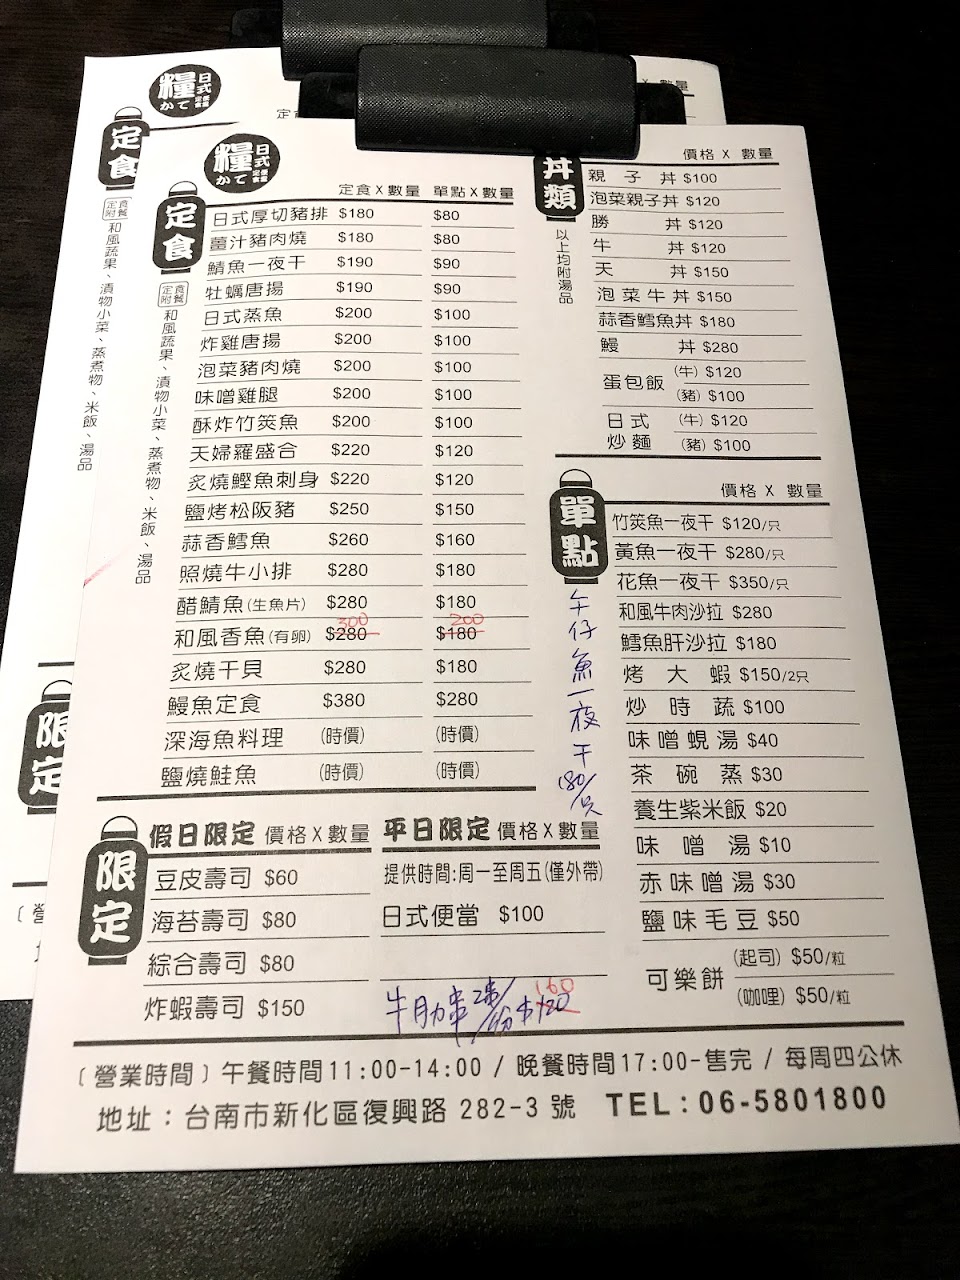 糧 日式
かて 定食
定食
定食附餐
和風蔬果、漬物小菜、蒸煮物、米飯、湯品
限定
X 數量
糧 日式
かて 定食
定食
定食附餐
和風蔬果、漬物小菜、蒸煮物、米飯、湯品
定食 X 數量 單點 X 數量
日式厚切豬排 $180 $80
薑汁豬肉燒 $180 $80
鯖魚一夜干 $190 $90
牡蠣唐揚 $190 $90
日式蒸魚 $200 $100
炸雞唐揚 $200 $100
泡菜豬肉燒 $200 $100
味噌雞腿 $200 $100
酥炸竹筴魚 $200 $100
天婦羅盛合 $220 $120
炙燒鰹魚刺身 $220 $120
鹽烤松阪豬 $250 $150
蒜香鱈魚 $260 $160
照燒牛小排 $280 $180
醋鯖魚(生魚片) $280 $180
300 200
和風香魚(有卵) $280 $180
炙燒干貝 $280 $180
鰻魚定食 $380 $280
深海魚料理 (時價) (時價)
鹽燒鮭魚 (時價) (時價)
丼類
以上均附湯品
價格 X 數量
親子丼 $100
泡菜親子丼 $120
勝丼 $120
牛丼 $120
天丼 $150
泡菜牛丼 $150
蒜香鱈魚丼 $180
鰻丼 $280
蛋包飯 (牛) $120
(豬) $100
日式炒麵 (牛) $120
(豬) $100
單點
價格 X 數量
竹筴魚一夜干 $120/只
黃魚一夜干 $280/只
花魚一夜干 $350/只
和風牛肉沙拉 $280
鱈魚肝沙拉 $180
烤大蝦 $150/2只
炒時蔬 $100
味噌蜆湯 $40
茶碗蒸 $30
養生紫米飯 $20
味噌湯 $10
赤味噌湯 $30
鹽味毛豆 $50
可樂餅 (起司) $50/粒
(咖哩) $50/粒
午仔魚一夜干 180/只
限定
假日限定 價格 X 數量
豆皮壽司 $60
海苔壽司 $80
綜合壽司 $80
炸蝦壽司 $150
平日限定 價格 X 數量
提供時間:周一至周五(僅外帶)
日式便當 $100
160
牛肋串 2串/份 $120
〔營業時間〕午餐時間11:00-14:00 / 晚餐時間17:00-售完 / 每周四公休
地址：台南市新化區復興路 282-3 號 TEL：06-5801800